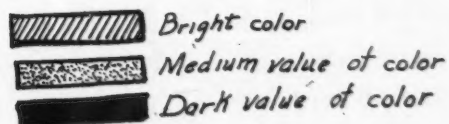 Bright color
Medium value of color
Dark value of color